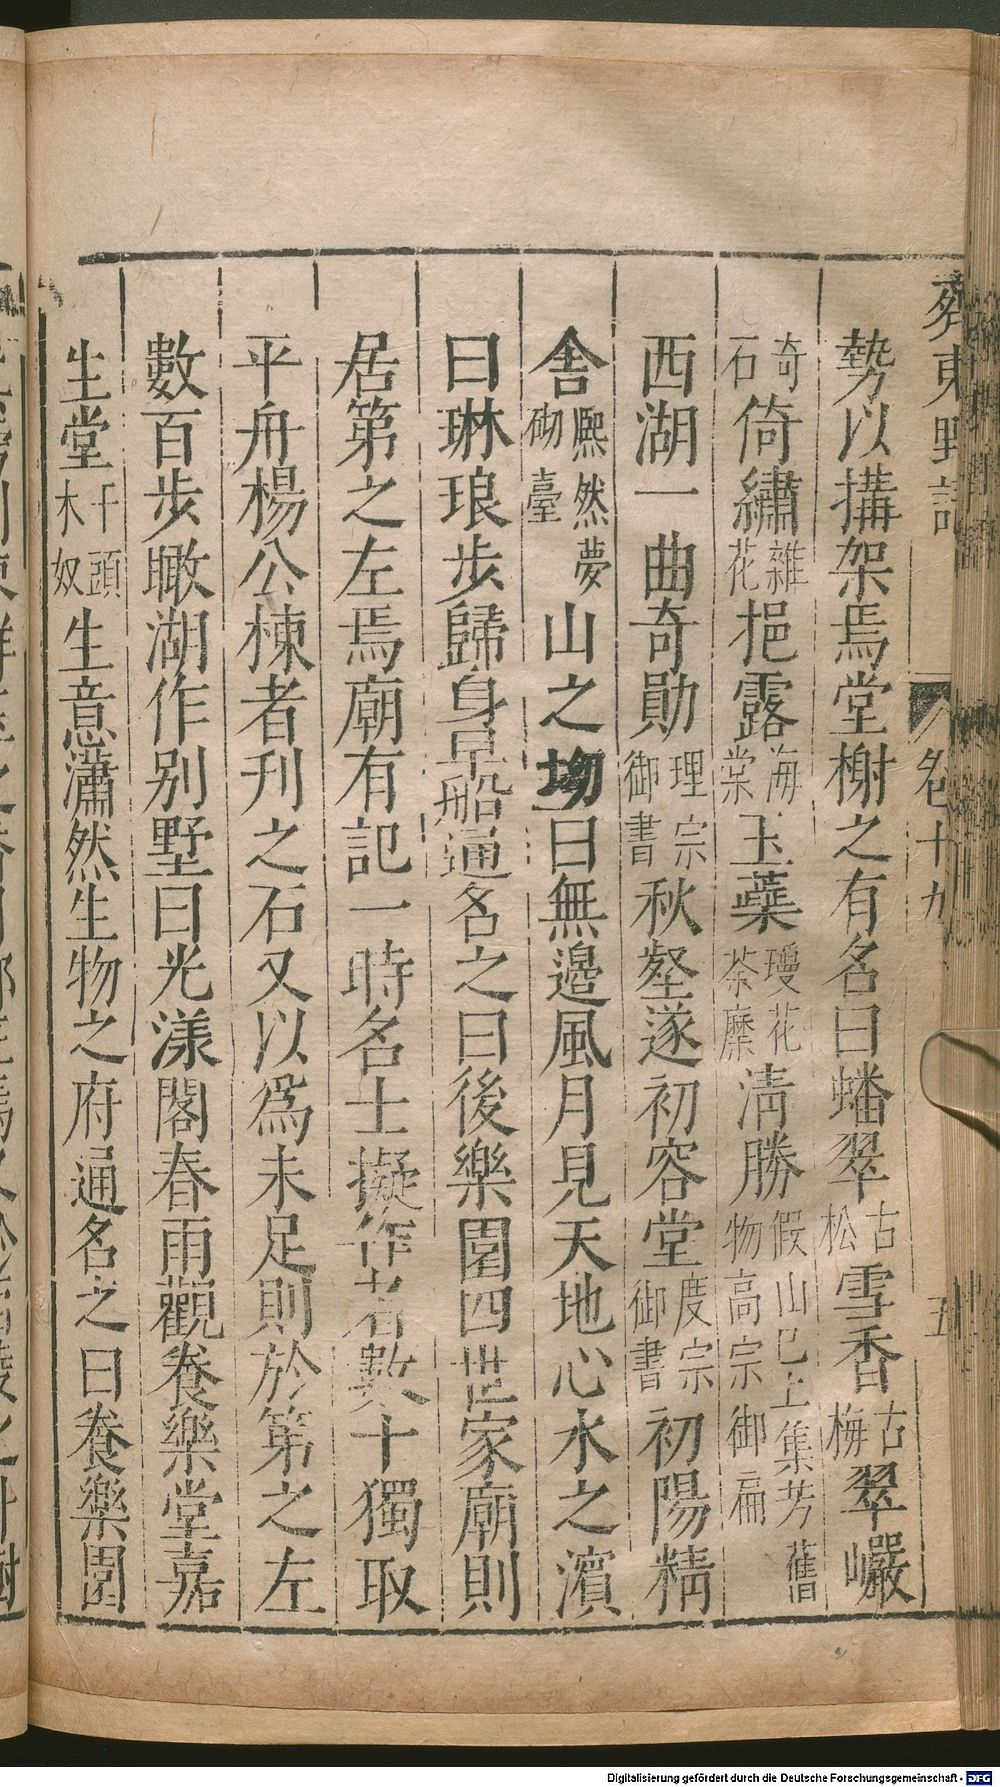 齊東野語
卷十九
五
勢以搆架焉堂榭之有名曰蟠翠古松雪香古梅翠巖
奇石倚繡雜花挹露海棠玉蘂瓊花荼䕷清勝假山已上集芳舊物高宗御扁
西湖一曲奇勛理宗御書秋壑遂初容堂度宗御書初陽精
舍熙然夢砌臺山之坳曰無邊風月見天地心水之濱
曰琳琅步歸身早船通名之曰後樂園四世家廟則
居第之左焉廟有記一時名士擬作者數十獨取
平舟楊公棟者刋之石又以爲未足則於第之左
數百步瞰湖作别墅曰光漾閣春雨觀養樂堂嘉
生堂千頭木奴生意瀟然生物之府通名之曰養樂園
Digitalisierung gefördert durch die Deutsche Forschungsgemeinschaft - DFG